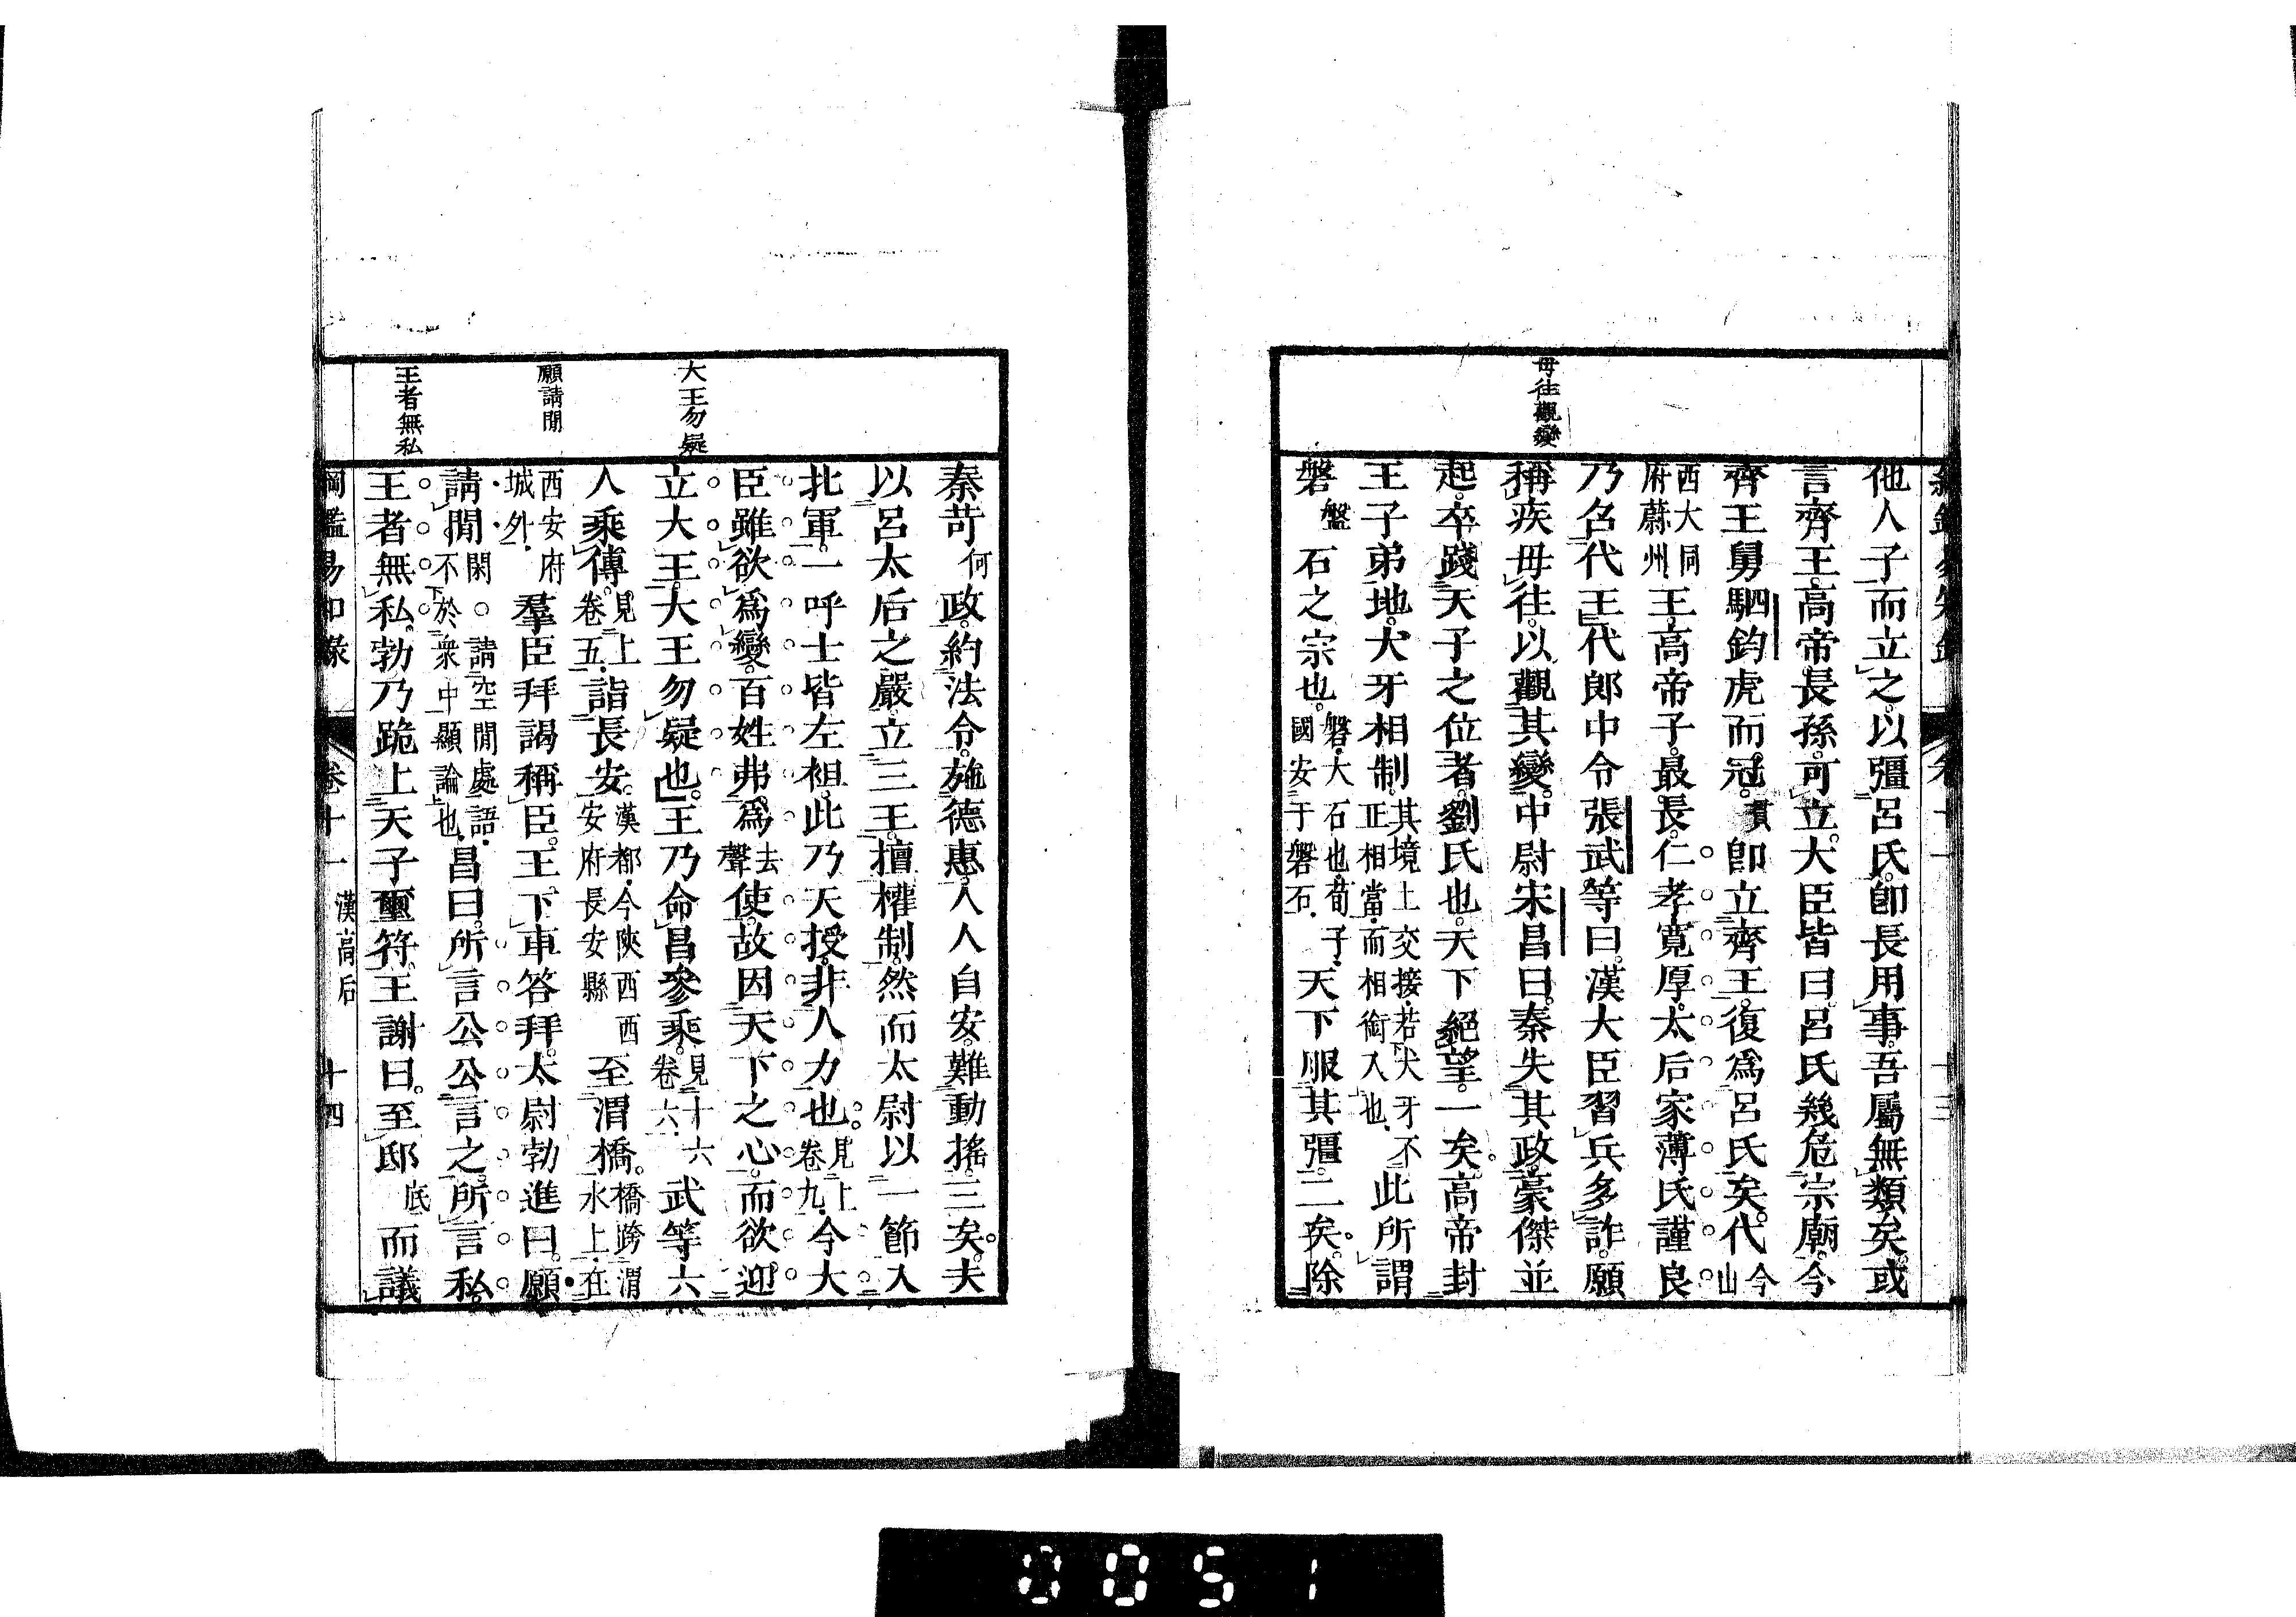 毋往觀變
他人子而立之以彊呂氏卽長用事吾屬無類矣或
言齊王高帝長孫可立大臣皆曰呂氏幾危宗廟今
齊王舅駟鈞虎而冠貫卽立齊王復爲呂氏矣代今山
西大同府蔚州王高帝子最長仁孝寬厚太后家薄氏謹良
乃召代王代郎中令張武等曰漢大臣習兵多詐願
稱疾毋往以觀其變中尉宋昌曰秦失其政豪傑並
起卒踐天子之位者劉氏也天下絕望一矣高帝封
王子弟地犬牙相制其境上交接若犬牙不正相當而相銜入也此所謂
磐盤石之宗也磐大石也荀子國安于磐石天下服其彊二矣除
大王勿疑
願請閒
王者無私
秦苛何政約法令施德惠人人自安難動搖三矣夫
以呂太后之嚴立三王擅權制然而太尉以一節入
北軍一呼士皆左袒此乃天授非人力也見上卷九今大
臣雖欲爲變百姓弗爲去聲使故因天下之心而欲迎
立大王大王勿疑也王乃命昌參乘見十六卷六武等六
人乘傳見上卷五詣長安漢都今陝西西安府長安縣至渭橋橋跨渭水上在
西安府城外羣臣拜謁稱臣王下車答拜太尉勃進曰願
請閒閑○請空閒處語不於衆中顯論也昌曰所言公公言之所言私
王者無私勃乃跪上天子璽符王謝曰至邸底而議
綱鑑易知錄 卷十一 漢高后 十四